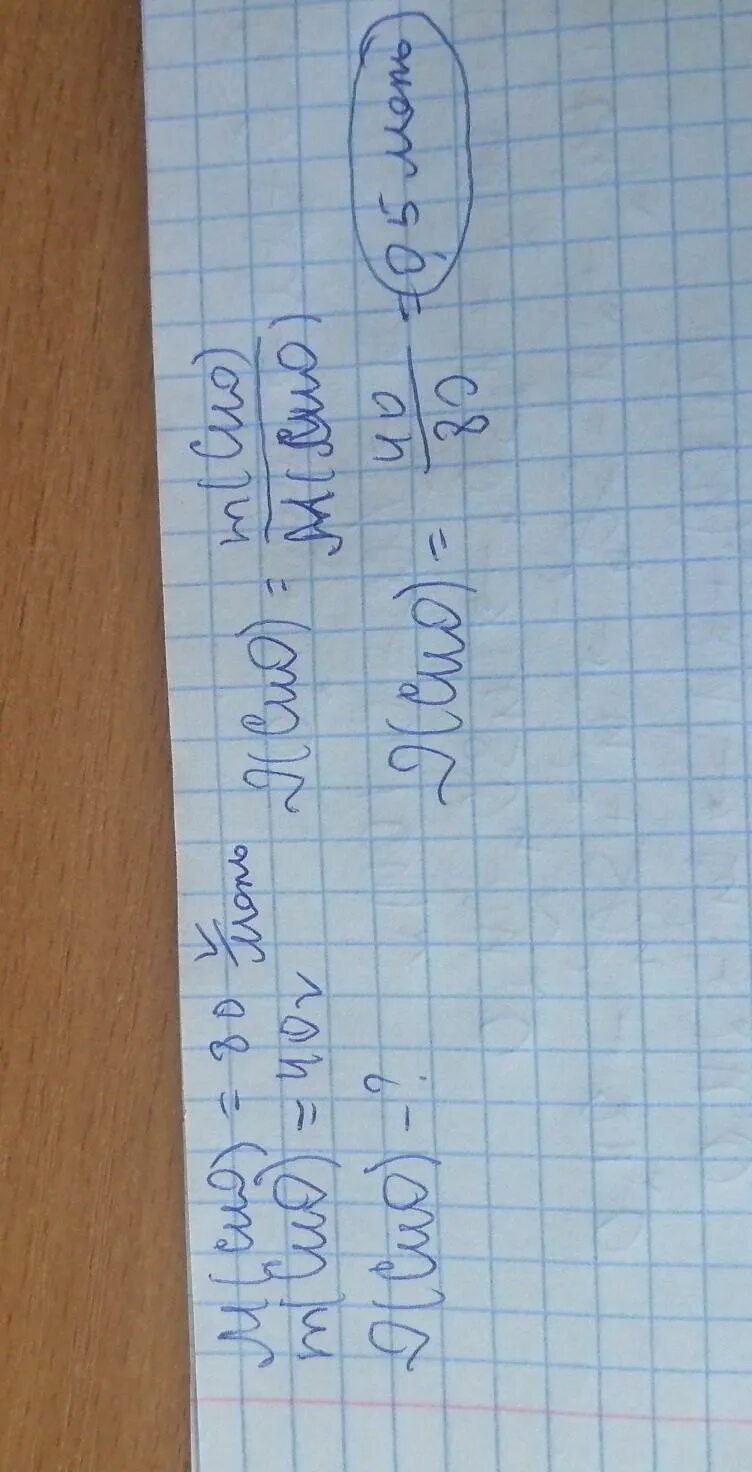 M(CuO) = 80 г/моль
m(CuO) = 40 г
ν(CuO) - ?
ν(CuO) = m(CuO) / M(CuO)
ν(CuO) = 40 / 80 = 0,5 моль